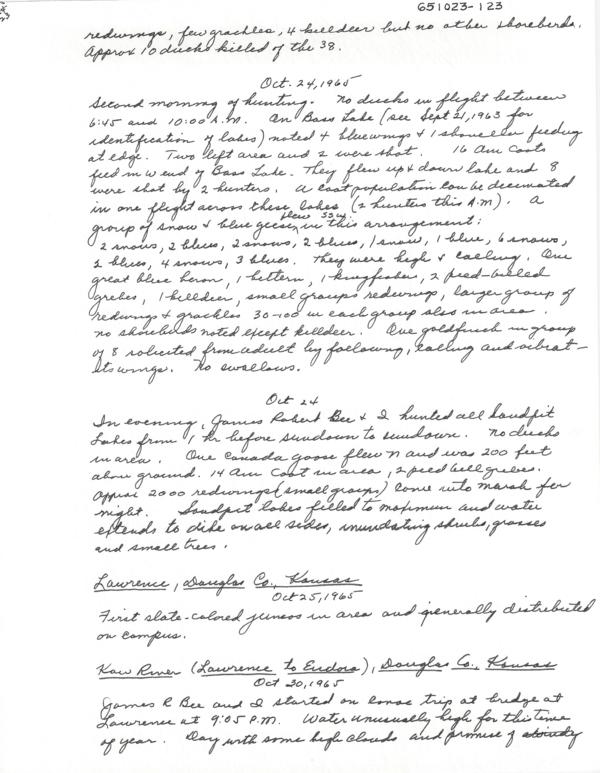 651023-123
redwings, few grackles, 4 killdeer but no other shorebirds.
Approx 10 ducks killed of the 38.
Oct. 24, 1965
Second morning of hunting. No ducks in flight between
6:45 and 10:00 A.M. On Bass Lake (see Sept 21, 1963 for
identification of lakes) noted 4 bluewings & 1 shoveller feeding
at edge. Two left area and 2 were shot. 16 Am Coots
feed in W end of Bass Lake. They flew up & down lake and 8
were shot by 2 hunters. A coot population can be decimated
in one flight across these lakes (2 hunters this A.M). A
group of snow & blue geese flew SSW in this arrangement:
2 snows, 2 blues, 2 snows, 2 blues, 1 snow, 1 blue, 6 snows,
2 blues, 4 snows, 3 blues. They were high & calling. One
great blue heron, 1 bittern, 1 kingfisher, 2 pied-billed
grebes, 1 killdeer, small groups redwings, larger group of
redwings & grackles 30-100 in each group also in area.
No shorebirds noted except killdeer. One goldfinch in group
of 8 solicited from adult by following, calling and vibrat-
its wings. No swallows.
Oct 24
In evening, James Robert Bee & I hunted all Sandpit
Lakes from 1 hr before sundown to sundown. No ducks
in area. One Canada goose flew N and was 200 feet
above ground. 14 Am Coot in area, 2 pied bill grebes.
Approx 2000 redwings (small groups) come into marsh for
night. Sandpit lakes filled to maximum and water
extends to dike on all sides, inundating shrubs, grasses
and small trees.
Lawrence, Douglas Co., Kansas
Oct 25, 1965
First slate-colored juncos in area and generally distributed
on campus.
Kaw River (Lawrence to Eudora), Douglas Co., Kansas
Oct 30, 1965
James R Bee and I started on canoe trip at bridge at
Lawrence at 9:05 A.M. Water unusually high for this time
of year. Day with some high clouds and promise of cloudy